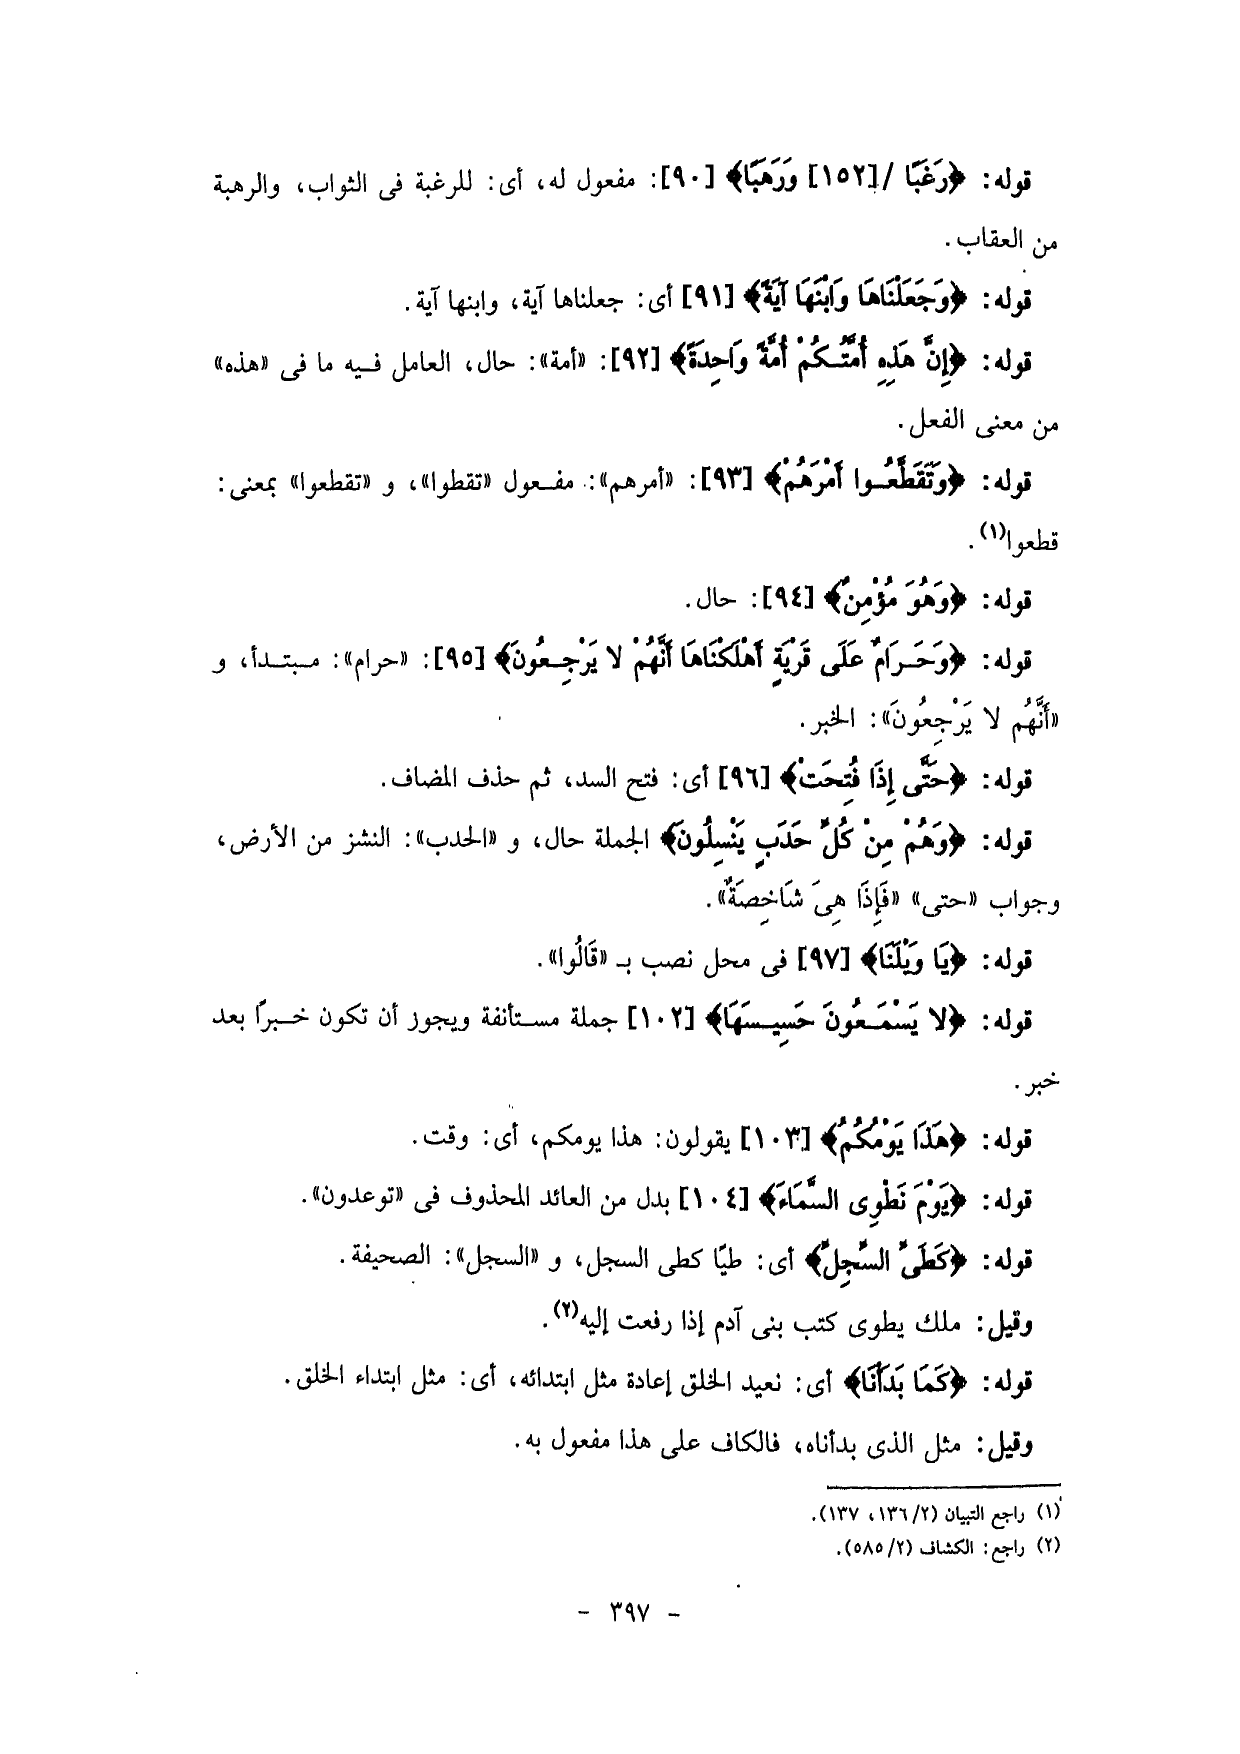 قوله: ﴿رَغَبًا /[١٥٢] وَرَهَبًا﴾ [٩٠]: مفعول له، أى: للرغبة فى الثواب، والرهبة
من العقاب.
قوله: ﴿وَجَعَلْنَاهَا وَابْنَهَا آيَةً﴾ [٩١] أى: جعلناها آية، وابنها آية.
قوله: ﴿إِنَّ هَذِهِ أُمَّتُكُمْ أُمَّةً وَاحِدَةً﴾ [٩٢]: «أمة»: حال، العامل فيه ما فى «هذه»
من معنى الفعل.
قوله: ﴿وَتَقَطَّعُوا أَمْرَهُمْ﴾ [٩٣]: «أمرهم»: مفعول «تقطوا»، و «تقطعوا» بمعنى:
قطعوا(١).
قوله: ﴿وَهُوَ مُؤْمِنٌ﴾ [٩٤]: حال.
قوله: ﴿وَحَرَامٌ عَلَى قَرْيَةٍ أَهْلَكْنَاهَا أَنَّهُمْ لا يَرْجِعُونَ﴾ [٩٥]: «حرام»: مبتدأ، و
«أَنَّهُم لا يَرْجِعُونَ»: الخبر.
قوله: ﴿حَتَّى إِذَا فُتِحَتْ﴾ [٩٦] أى: فتح السد، ثم حذف المضاف.
قوله: ﴿وَهُمْ مِنْ كُلِّ حَدَبٍ يَنْسِلُونَ﴾ الجملة حال، و «الحدب»: النشز من الأرض،
وجواب «حتى» «فَإِذَا هِىَ شَاخِصَةٌ».
قوله: ﴿يَا وَيْلَنَا﴾ [٩٧] فى محل نصب بـ «قَالُوا».
قوله: ﴿لا يَسْمَعُونَ حَسِيسَهَا﴾ [١٠٢] جملة مستأنفة ويجوز أن تكون خبرًا بعد
خبر.
قوله: ﴿هَذَا يَوْمُكُمُ﴾ [١٠٣] يقولون: هذا يومكم، أى: وقت.
قوله: ﴿يَوْمَ نَطْوِى السَّمَاءَ﴾ [١٠٤] بدل من العائد المحذوف فى «توعدون».
قوله: ﴿كَطَىِّ السِّجِلِّ﴾ أى: طيًا كطى السجل، و «السجل»: الصحيفة.
وقيل: ملك يطوى كتب بنى آدم إذا رفعت إليه(٢).
قوله: ﴿كَمَا بَدَأْنَا﴾ أى: نعيد الخلق إعادة مثل ابتدائه، أى: مثل ابتداء الخلق.
وقيل: مثل الذى بدأناه، فالكاف على هذا مفعول به.
(١) راجع التبيان (٢/ ١٣٦، ١٣٧).
(٢) راجع: الكشاف (٢/ ٥٨٥).
- ٣٩٧ -